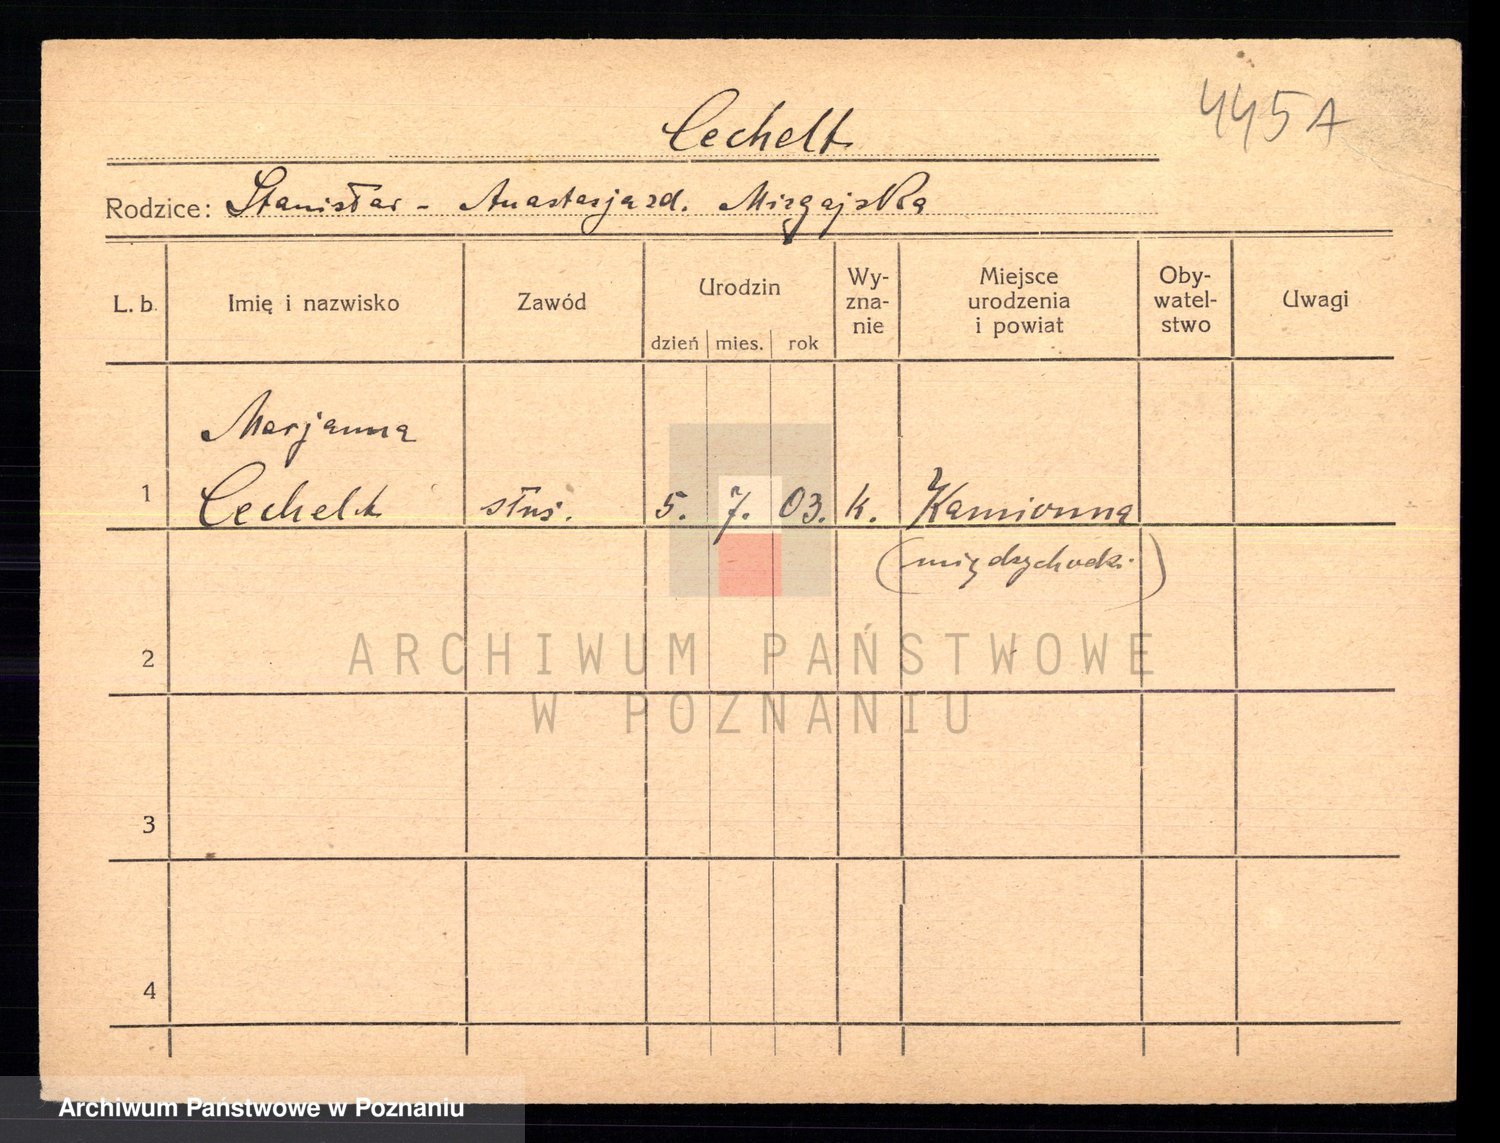 445A
Cechelt
Rodzice: Stanisław - Anastazja zd. Mizgajska
L. b. Imię i nazwisko Zawód Urodzin Wy- Miejsce Oby- Uwagi
zna- urodzenia watel-
nie i powiat stwo
dzień mies. rok
Marjanna
1 Cechelt służ. 5. 7. 03. k. Kamionna
(międzychodzki)
2
3
4
ARCHIWUM PAŃSTWOWE
W POZNANIU
Archiwum Państwowe w Poznaniu